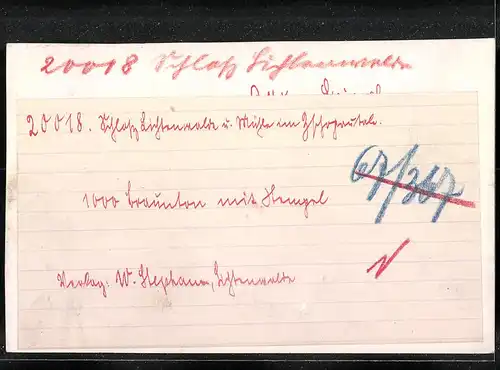 20018 Schloß Lichtenwalde
20018. Schloß Lichtenwalde u. Mühle im Zschopautal.
67/367
1000 Braunton mit Stempel
Verlag: W. Stephan, Lichtenwalde